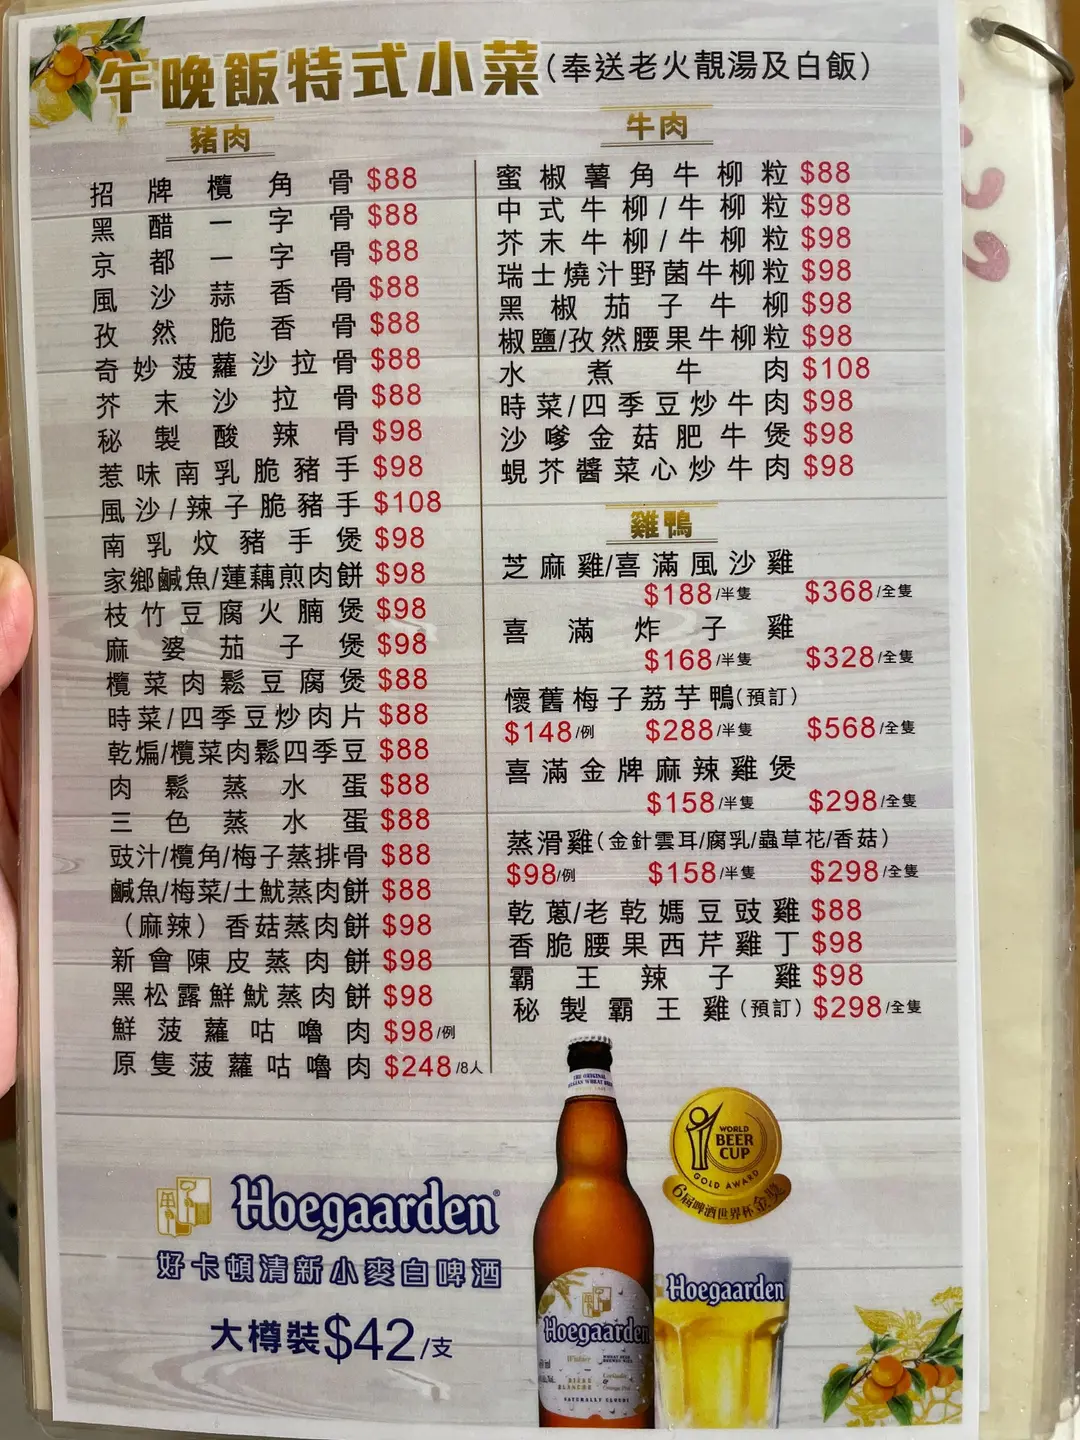 午晚飯特式小菜(奉送老火靚湯及白飯)
豬肉
招牌欖角骨 $88
黑醋一字骨 $88
京都一字骨 $88
風沙蒜香骨 $88
孜然脆香骨 $88
奇妙菠蘿沙拉骨 $88
芥末沙拉骨 $88
秘製酸辣骨 $98
惹味南乳脆豬手 $98
風沙/辣子脆豬手 $108
南乳炆豬手煲 $98
家鄉鹹魚/蓮藕煎肉餅 $98
枝竹豆腐火腩煲 $98
麻婆茄子煲 $98
欖菜肉鬆豆腐煲 $88
時菜/四季豆炒肉片 $88
乾煸/欖菜肉鬆四季豆 $88
肉鬆蒸水蛋 $88
三色蒸水蛋 $88
豉汁/欖角/梅子蒸排骨 $88
鹹魚/梅菜/土魷蒸肉餅 $88
(麻辣)香菇蒸肉餅 $98
新會陳皮蒸肉餅 $98
黑松露鮮魷蒸肉餅 $98
鮮菠蘿咕嚕肉 $98/例
原隻菠蘿咕嚕肉 $248/8人
牛肉
蜜椒薯角牛柳粒 $88
中式牛柳/牛柳粒 $98
芥末牛柳/牛柳粒 $98
瑞士燒汁野菌牛柳粒 $98
黑椒茄子牛柳 $98
椒鹽/孜然腰果牛柳粒 $98
水煮牛肉 $108
時菜/四季豆炒牛肉 $98
沙嗲金菇肥牛煲 $98
蜆芥醬菜心炒牛肉 $98
雞鴨
芝麻雞/喜滿風沙雞
$188/半隻 $368/全隻
喜滿炸子雞
$168/半隻 $328/全隻
懷舊梅子荔芋鴨(預訂)
$148/例 $288/半隻 $568/全隻
喜滿金牌麻辣雞煲
$158/半隻 $298/全隻
蒸滑雞(金針雲耳/腐乳/蟲草花/香菇)
$98/例 $158/半隻 $298/全隻
乾蔥/老乾媽豆豉雞 $88
香脆腰果西芹雞丁 $98
霸王辣子雞 $98
秘製霸王雞(預訂) $298/全隻
Hoegaarden
好卡頓清新小麥白啤酒
大樽裝$42/支
THE ORIGINAL
BELGIAN WHEAT BEER
Hoegaarden
Witbier
BIERE
BLANCHE
NATURALLY CLOUDY
WORLD
BEER
CUP
GOLD AWARD
6屆啤酒世界杯金獎
Hoegaarden